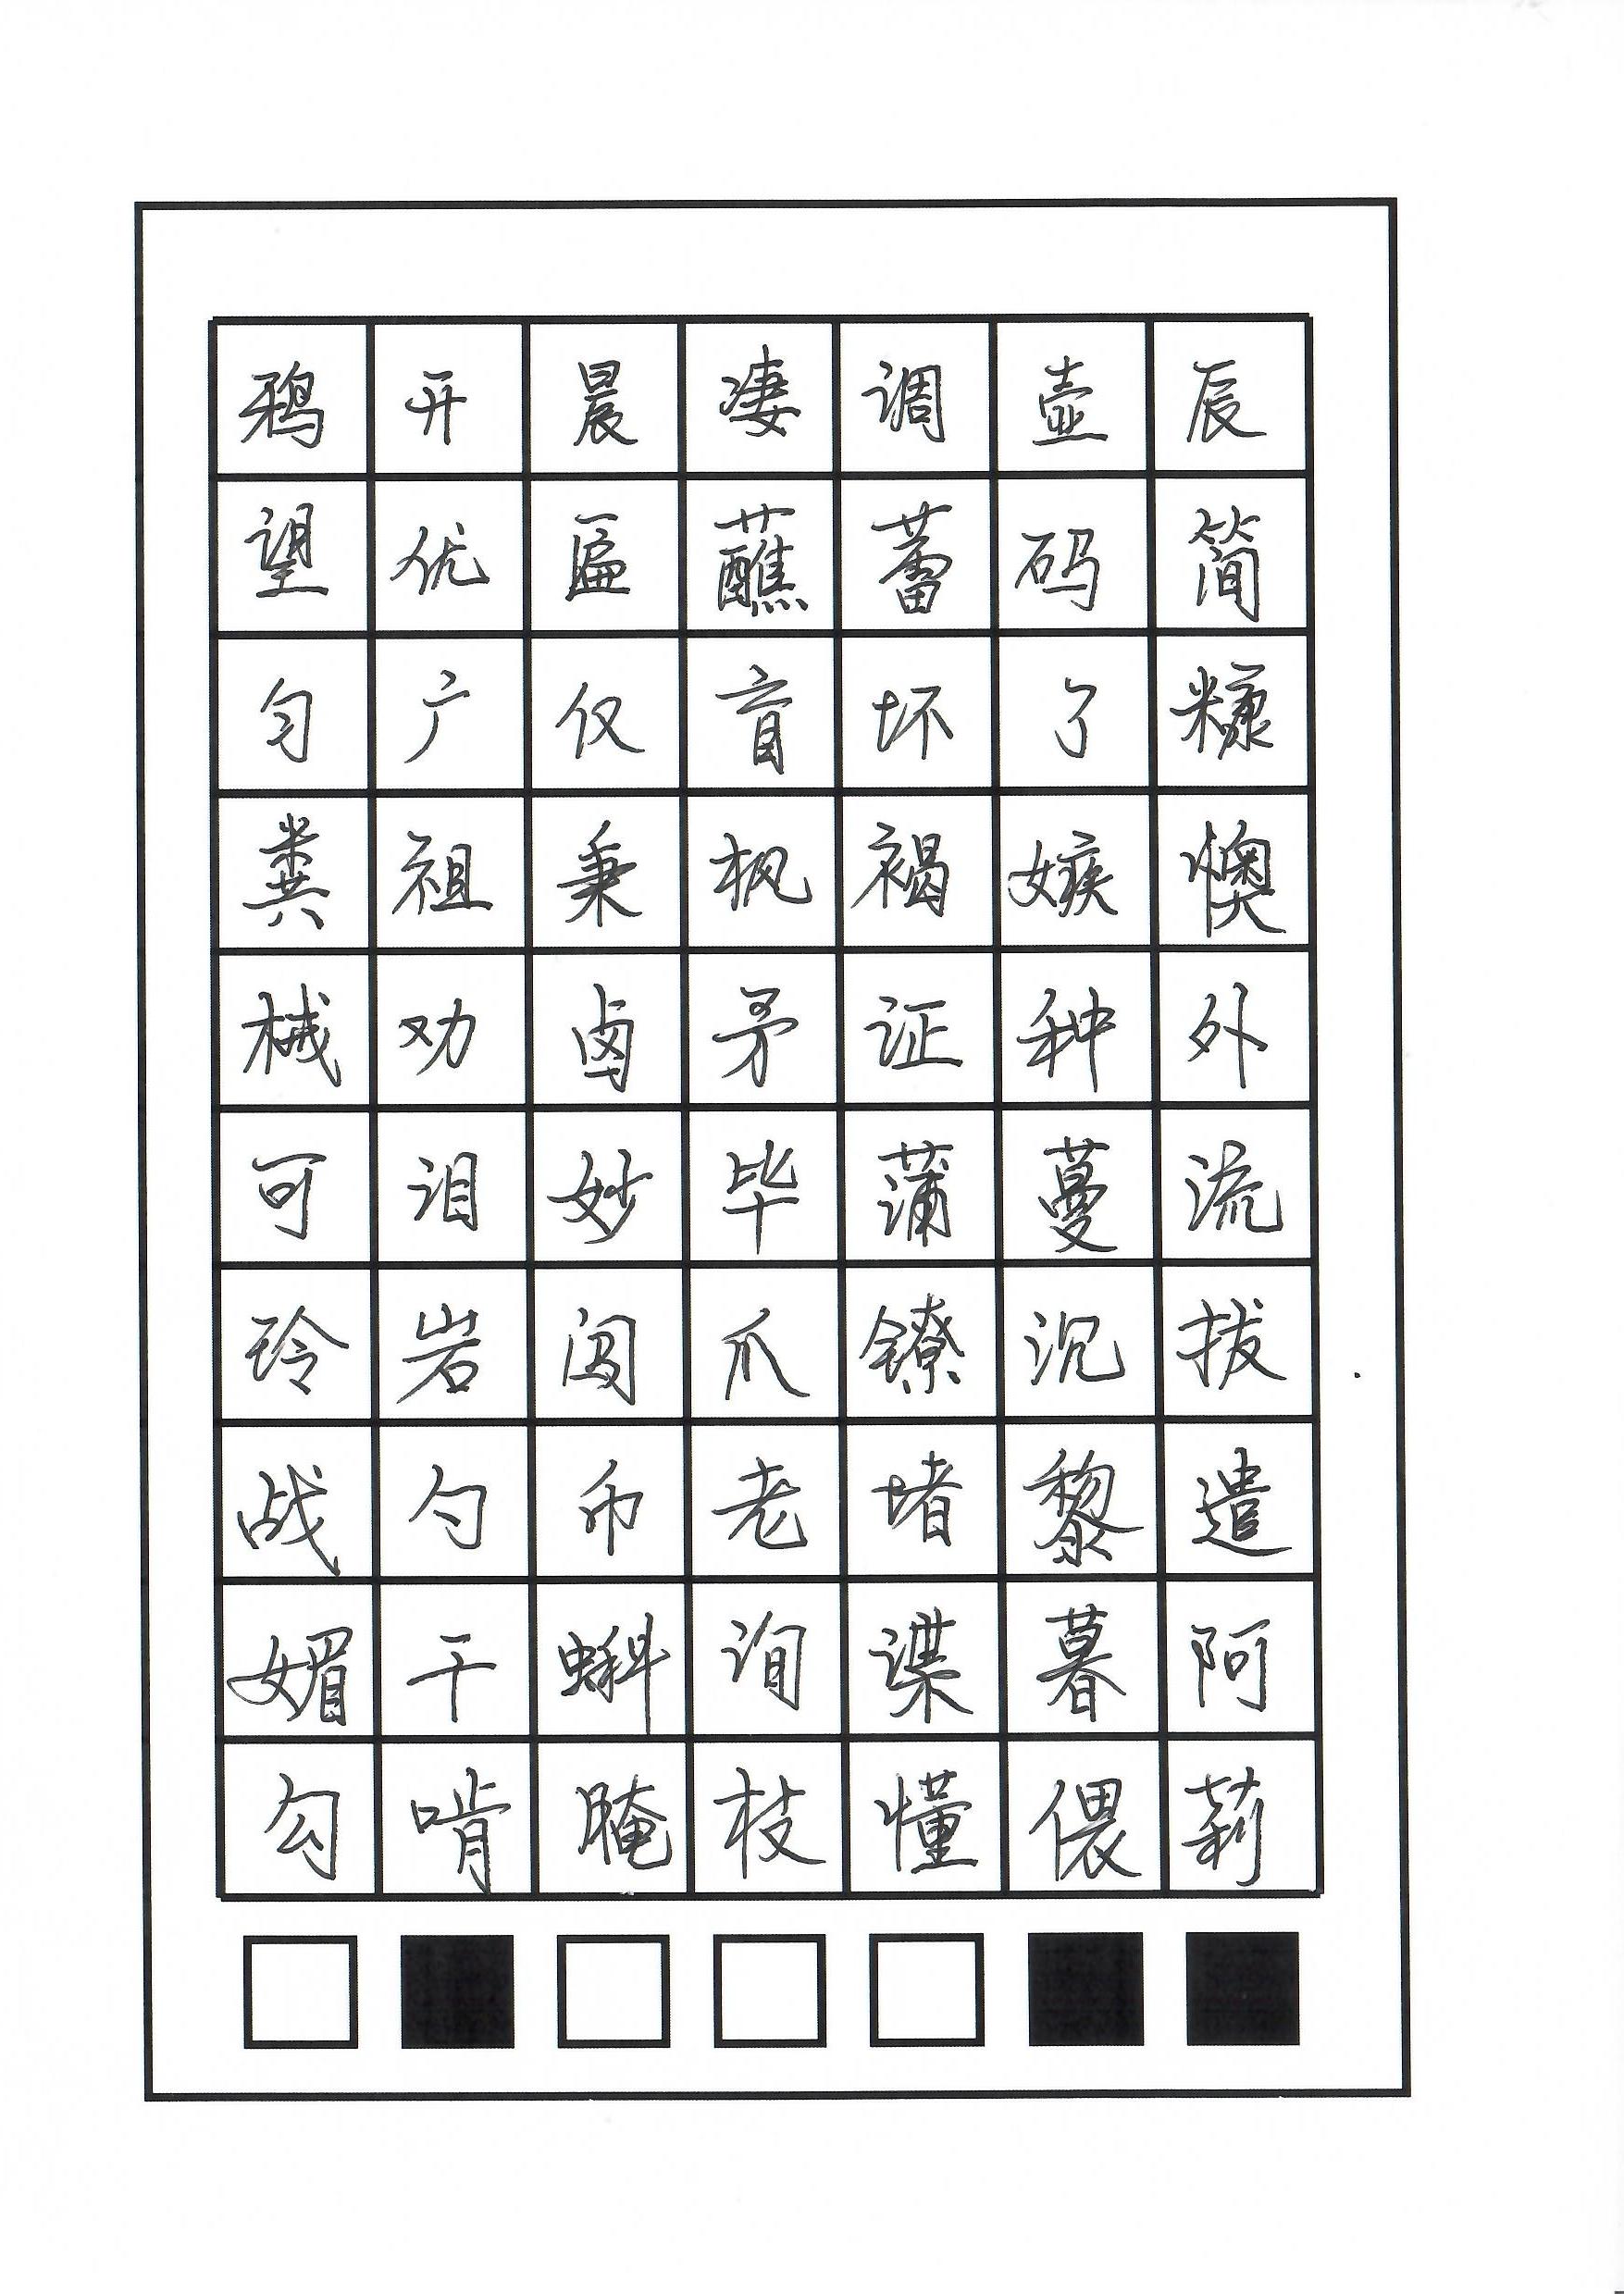 鸦开晨凄调壶辰
望优匾蘸蕾码简
匀广仅盲坏了糠
粪祖秉枫褐嫉懊
械劝卤矛证种外
可泪妙毕蒲蔓流
玲岩闯爪镣沉拔
战勺币老堵黎遣
媚干蝌询谍暮阿
勾啃腌枝懂偎莉